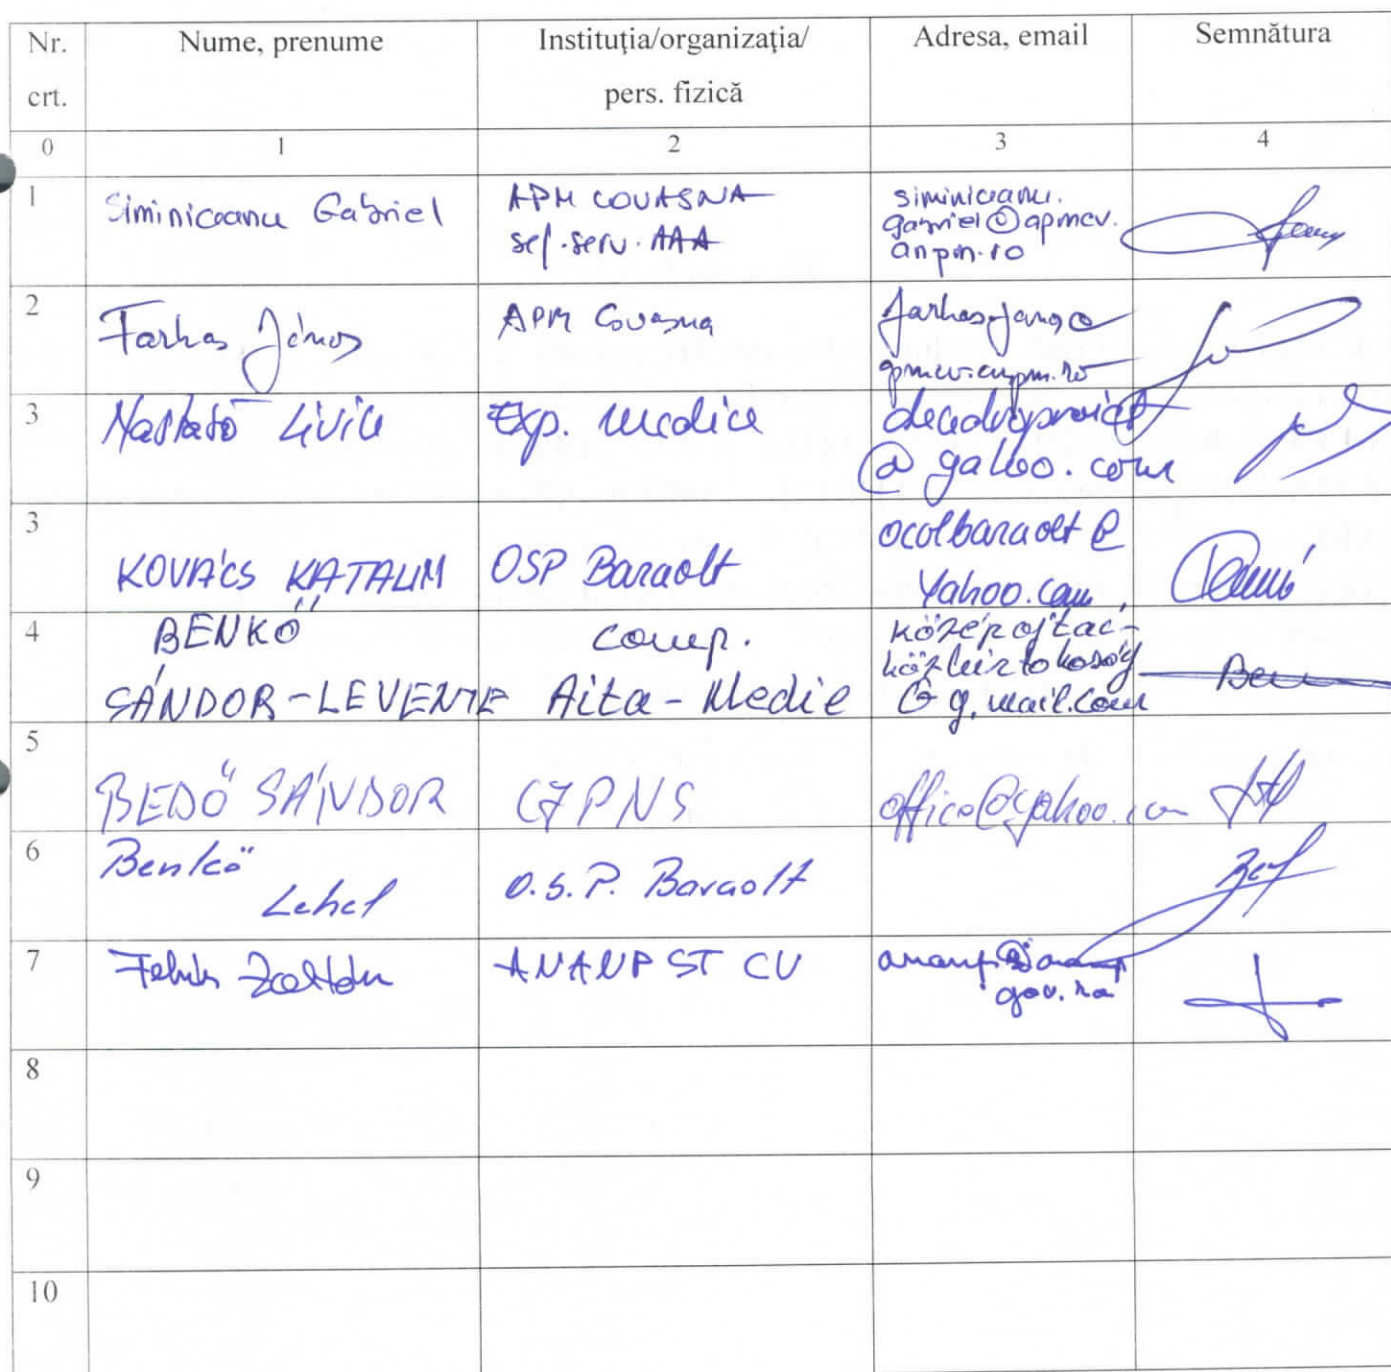 Nr.
crt.
Nume, prenume
Instituţia/organizaţia/
pers. fizică
Adresa, email
Semnătura
0
1
2
3
4
1
Siminiceanu Gabriel
APM COVASNA
șef. serv. AAA
siminiceanu.
gabriel@apmcv.
anpm.ro
2
Farkas János
APM Covasna
farkas.janos@
apmcv.anpm.ro
3
Livia
Exp. medice
@yahoo.com
3
KOVÁCS KATALIN
OSP Baraolt
ocolbaraolt@
yahoo.com
4
BENKŐ
SÁNDOR-LEVENTE
comp.
Aita-Medie
középajtac-
közbirtokosság
@g.mail.com
5
BEDŐ SÁNDOR
office@yahoo.com
6
Benkő
Lehel
O.S.P. Baraolt
7
Zoltán
ANANP ST CU
gov.ro
8
9
10